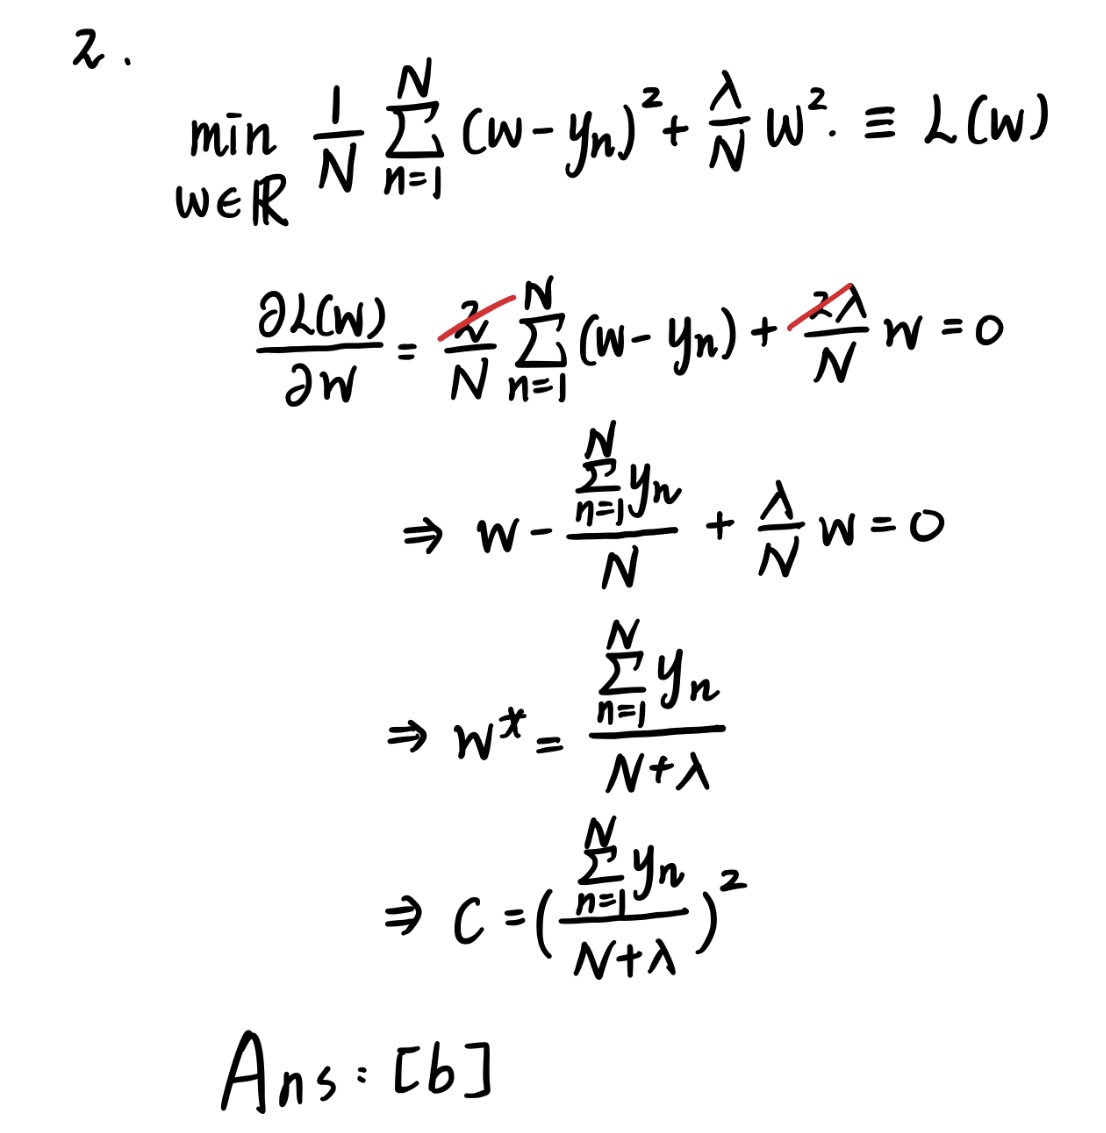 2.
min_{w∈ℝ} \frac{1}{N} \sum_{n=1}^{N} (w - y_n)^2 + \frac{λ}{N} w^2. ≡ L(w)
\frac{∂L(w)}{∂w} = \frac{2}{N} \sum_{n=1}^{N} (w - y_n) + \frac{2λ}{N} w = 0
⇒ w - \frac{\sum_{n=1}^{N} y_n}{N} + \frac{λ}{N} w = 0
⇒ w^* = \frac{\sum_{n=1}^{N} y_n}{N+λ}
⇒ C = (\frac{\sum_{n=1}^{N} y_n}{N+λ})^2
Ans: [b]